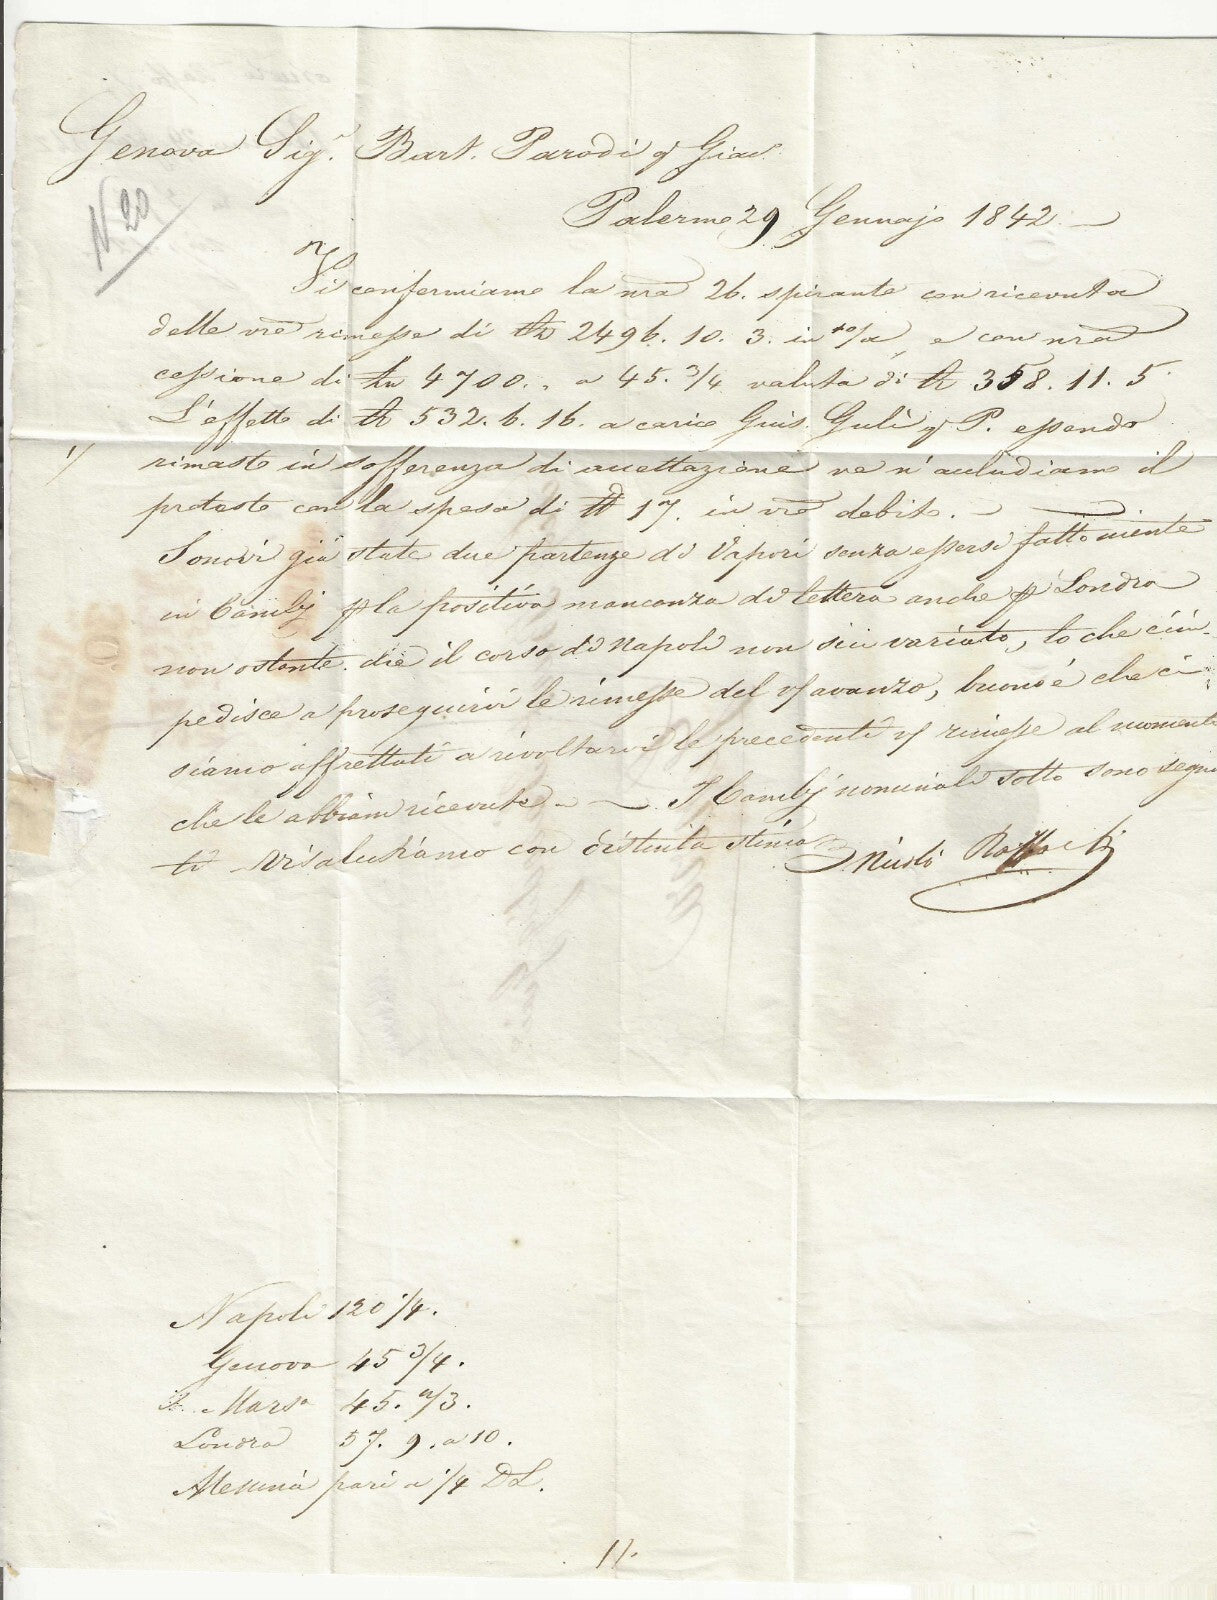 Genova Sig.r Bart. Parodi q Giac.
N 20
Palermo 29 Gennajo 1842
Vi confermiamo la nra 26. spirante con ricevuta
delle vre rimesse di 2496. 10. 3. in e con nra
cessione di Ln 4700. a 45. 3/4 valuta di 358. 11. 5
L'effetto di 532. 6. 16. a carico Gius. Gulì q P. essendo
1/
rimasto in sofferenza di accettazione ve n'accludiamo il
protesto con la spesa di 17. in vro debito.
Sonovi già state due partenze di Vapori senza essersi fatto niente
in Cambj p la positiva mancanza di lettera anche p Londra
non ostante che il corso di Napoli non sia variato, lo che c'im-
pedisce a proseguirvi le rimesse del avanzo, buono è che ci
siamo affrettati a rivoltarvi le precedenti rimesse al momento
che le abbiam ricevute. I Cambj nominali sotto sono segnati
Vi salutiamo con distinta stima
Napoli 120 1/4.
Genova 45 3/4.
Marsa 45. 2/3.
Londra 57. 9. a 10.
Messina pari a 1/4 DL.
11.